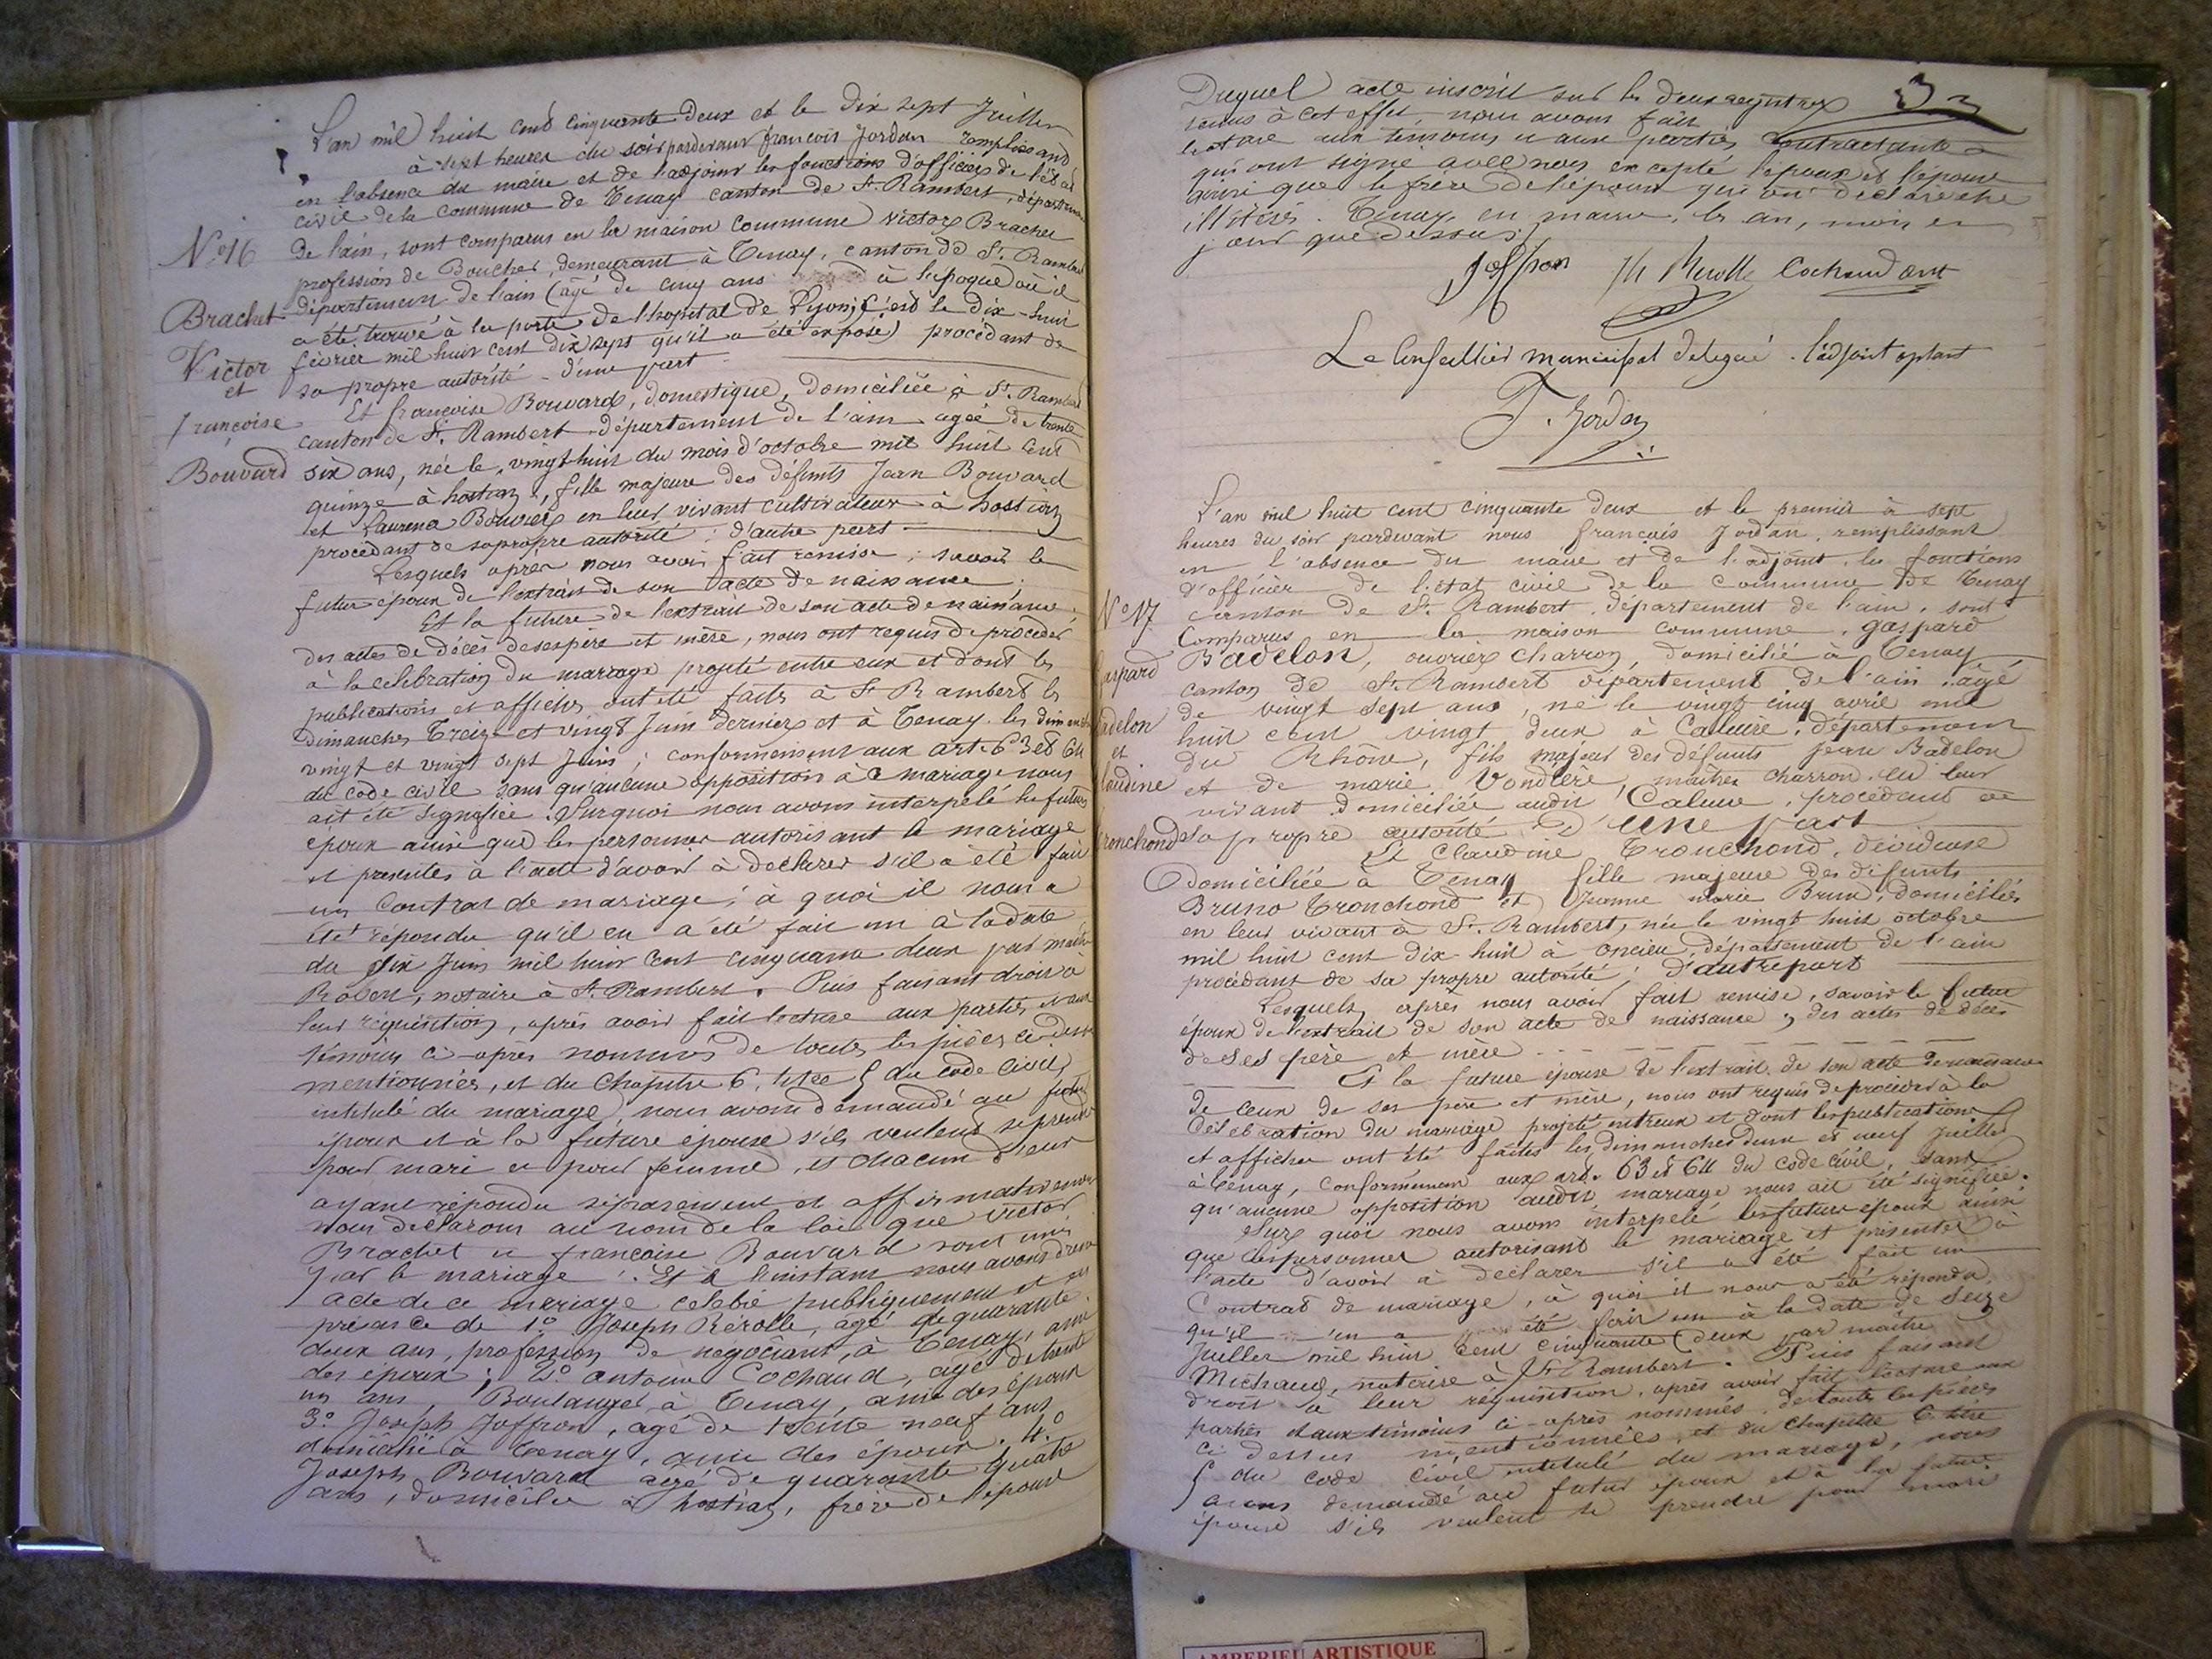 L'an mil huit cent cinquante deux et le dix sept Juillet
à sept heures du soir pardevant françois Jordan remplissant
en l'absence du maire et de l'adjoint les fonctions d'officier de l'état
civil de la commune de Tenay canton de St. Rambert, départem
N°.16
de l'ain, sont comparus en la maison commune victor Brachet
profession de Boucher, demeurant à Tenay, canton de St. Rambert
département de l'ain (agé de cinq ans à l'époque où il
Brachet
a été trouvé à la porte de l'hopital de Lyon; c'est le dix-huit
Victor
février mil huit cent dix sept qu'il a été exposé) procédant de
et
sa propre autorité - d'une part
françoise
Et françoise Bouvard, domestique, domiciliée à St. Rambert
canton de St. Rambert département de l'ain agée de trente
Bouvard
six ans, née le vingt huit du mois d'octobre mil huit cent
quinze à hostiaz, fille majeure des défunts Jean Bouvard
et Laurence Bouvier en leur vivant cultivateur à hostiaz
procédant de sa propre autorité; d'autre part
Lesquels après nous avoir fait remise; savoir le
futur époux de l'extrait de son acte de naissance.
Et la future de l'extrait de son acte de naissance.
des actes de décès de ses père et mère, nous ont requis de procéder
à la célébration du mariage projeté entre eux et dont les
publications et affiches ont été faites à St Rambert les
dimanches treize et vingt Juin dernier et à Tenay les dimanches
vingt et vingt sept Juin; conformément aux art. 63 et 64
du code civil sans qu'aucune opposition à ce mariage nous
ait été signifiée. Surquoi nous avons interpelé les futurs
époux ainsi que les personnes autorisant le mariage
et présentes à l'acte d'avoir à déclarer s'il a été fait
un contrat de mariage; à quoi il nous a
été répondu qu'il en a été fait un à la date
du six Juin mil huit cent cinquante deux par maître
Robert, notaire à St. Rambert. Puis faisant droit à
leur réquisition, après avoir fait lecture aux parties et aux
témoins ci-après nommés de toutes les pièces ci-dessus
mentionnées, et du chapitre 6, titre 5 du code civil,
intitulé du mariage, nous avons demandé au futur
époux et à la future épouse s'ils veulent se prendre
pour mari et pour femme, et chacun d'eux
ayant répondu séparément et affirmativement
nous déclarons au nom de la loi que victor
Brachet et françoise Bouvard sont unis
par le mariage. Et à l'instant nous avons dressé
acte de ce mariage célébré publiquement et en
présence de 1° Joseph Rérolle, agé de quarante
deux ans, profession de négociant, à Tenay, ami
des époux; 2° antoine Cochaud, agé de trente
un ans, Boulanger à Tenay, ami des époux
3° Joseph Joffron, agé de trente neuf ans
domicilié à Tenay, ami des époux. 4°
Joseph Bouvard agé de quarante quatre
ans, domicilié à hostiaz, frère de l'épouse
Duquel acte inscrit sur les deux registres
tenus à cet effet, nous avons fait
lecture aux témoins et aux parties contractantes
qui ont signé avec nous excepté l'époux et l'épouse
ainsi que le frère de l'épouse qui ont déclaré être
illétérés. Tenay, en mairie, les an, mois et
jour que dessus.
Joffron Cochaud ant
Le Conseiller municipal délégué. l'adjoint optant
F. Jordan
L'an mil huit cent cinquante deux et le premier à sept
heures du soir pardevant nous françois Jordan, remplissant
en l'absence du maire et de l'adjoint les fonctions
d'officier de l'état civil de la commune de Tenay
N°17
canton de St. Rambert, département de l'ain, sont
Comparus en la maison commune, gaspard
gaspard
Badelon, ouvrier charron, domicilié à Tenay
canton de St. Rambert département de l'ain, agé
de vingt sept ans, né le vingt cinq avril mil
adelon
huit cent vingt deux à Caluire, département
et
du Rhône, fils majeur des défunts Jean Badelon
laudine
et de marie Vondière, maître charron en leur
vivant domiciliés audit Caluire, procédant de
ronchond
sa propre autorité d'une part
Et Claudine Tronchond, dévideuse
domiciliée à Tenay fille majeure des défunts
Bruno Tronchond et Jeanne marie Brun, domiciliés
en leur vivant à St. Rambert, née le vingt huit octobre
mil huit cent dix-huit à oncieu, département de l'ain
procédant de sa propre autorité; d'autre part
Lesquels, après nous avoir fait remise, savoir le futur
époux de l'extrait de son acte de naissance, des actes de décès
de ses père et mère
Et la future épouse de l'extrait de son acte de naissance
de ceux de ses père et mère, nous ont requis de procéder à la
célébration du mariage projeté entreux et dont les publications
et affiches ont été faites les dimanches deux et neuf Juillet
à Tenay, conformément aux art. 63 et 64 du code civil, sans
qu'aucune opposition audit mariage nous ait été signifiée.
Sur quoi nous avons interpelé les futurs époux ainsi
que les personnes autorisant le mariage et présentes à
l'acte d'avoir à déclarer s'il a été fait un
Contrat de mariage, à quoi il nous a été répondu
qu'il en a été fait un à la date de seize
Juillet mil huit cent cinquante deux par maître
Michaud, notaire à St Rambert. Puis faisant
droit à leur réquisition, après avoir fait lecture aux
parties et aux témoins ci-après nommés, de toutes les pièces
ci dessus mentionnées, et du chapitre 6 titre
5 du code civil intitulé du mariage, nous
avons demandé au futur époux et à la future
épouse s'ils veulent se prendre pour mari
AMBERIEU ARTISTIQUE